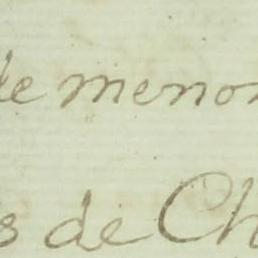 de menor
s de Ch